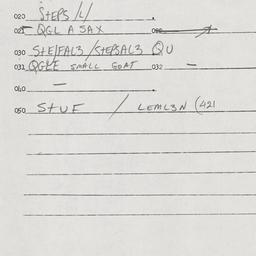 020 STEPS /L/
021 QGL A SAX
030 STE/FAL3 /STEPSAL3 QU
031 QGLE SMALL GOAT 032 —
040 —
050 STUE / LEML3N (421